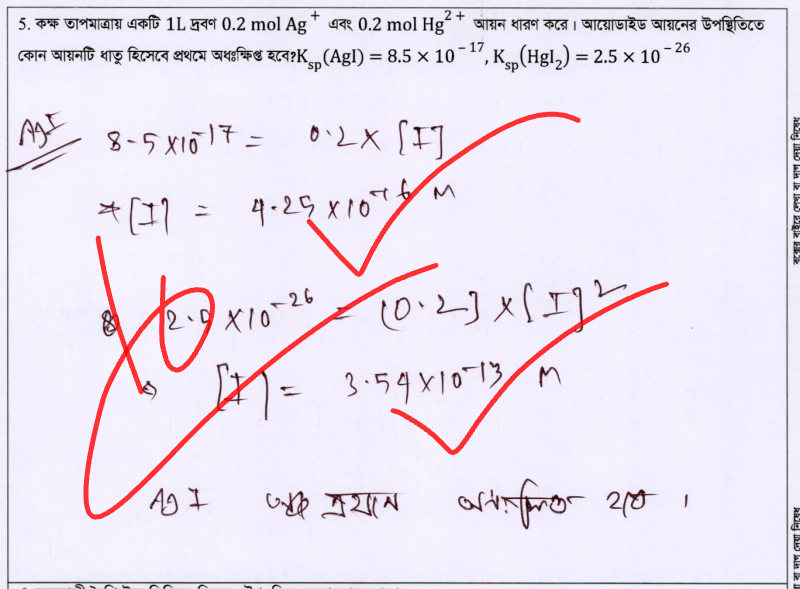 5. কক্ষ তাপমাত্রায় একটি 1L দ্রবণ 0.2 mol Ag⁺ এবং 0.2 mol Hg²⁺ আয়ন ধারণ করে। আয়োডাইড আয়নের উপস্থিতিতে
কোন আয়নটি ধাতু হিসেবে প্রথমে অধঃক্ষিপ্ত হবে?K_sp(AgI) = 8.5 × 10⁻¹⁷, K_sp(HgI₂) = 2.5 × 10⁻²⁶
AgI
8.5×10⁻¹⁷ = 0.2 × [I]
[I] = 4.25 × 10⁻¹⁶ M
2.5 × 10⁻²⁶ = [0.2] × [I]²
[I] = 3.54 × 10⁻¹³ M
AgI হবে ।